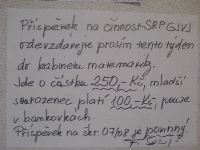 Příspěvek na činnost SRPGJVJ
odevzdávejte prosím tento týden
do kabinetu matematiky.
Jde o částku 250,-Kč, mladší
sourozenec platí 100,-Kč, pouze
v bankovkách.
Příspěvek na šk.r. 07/08 je povinný